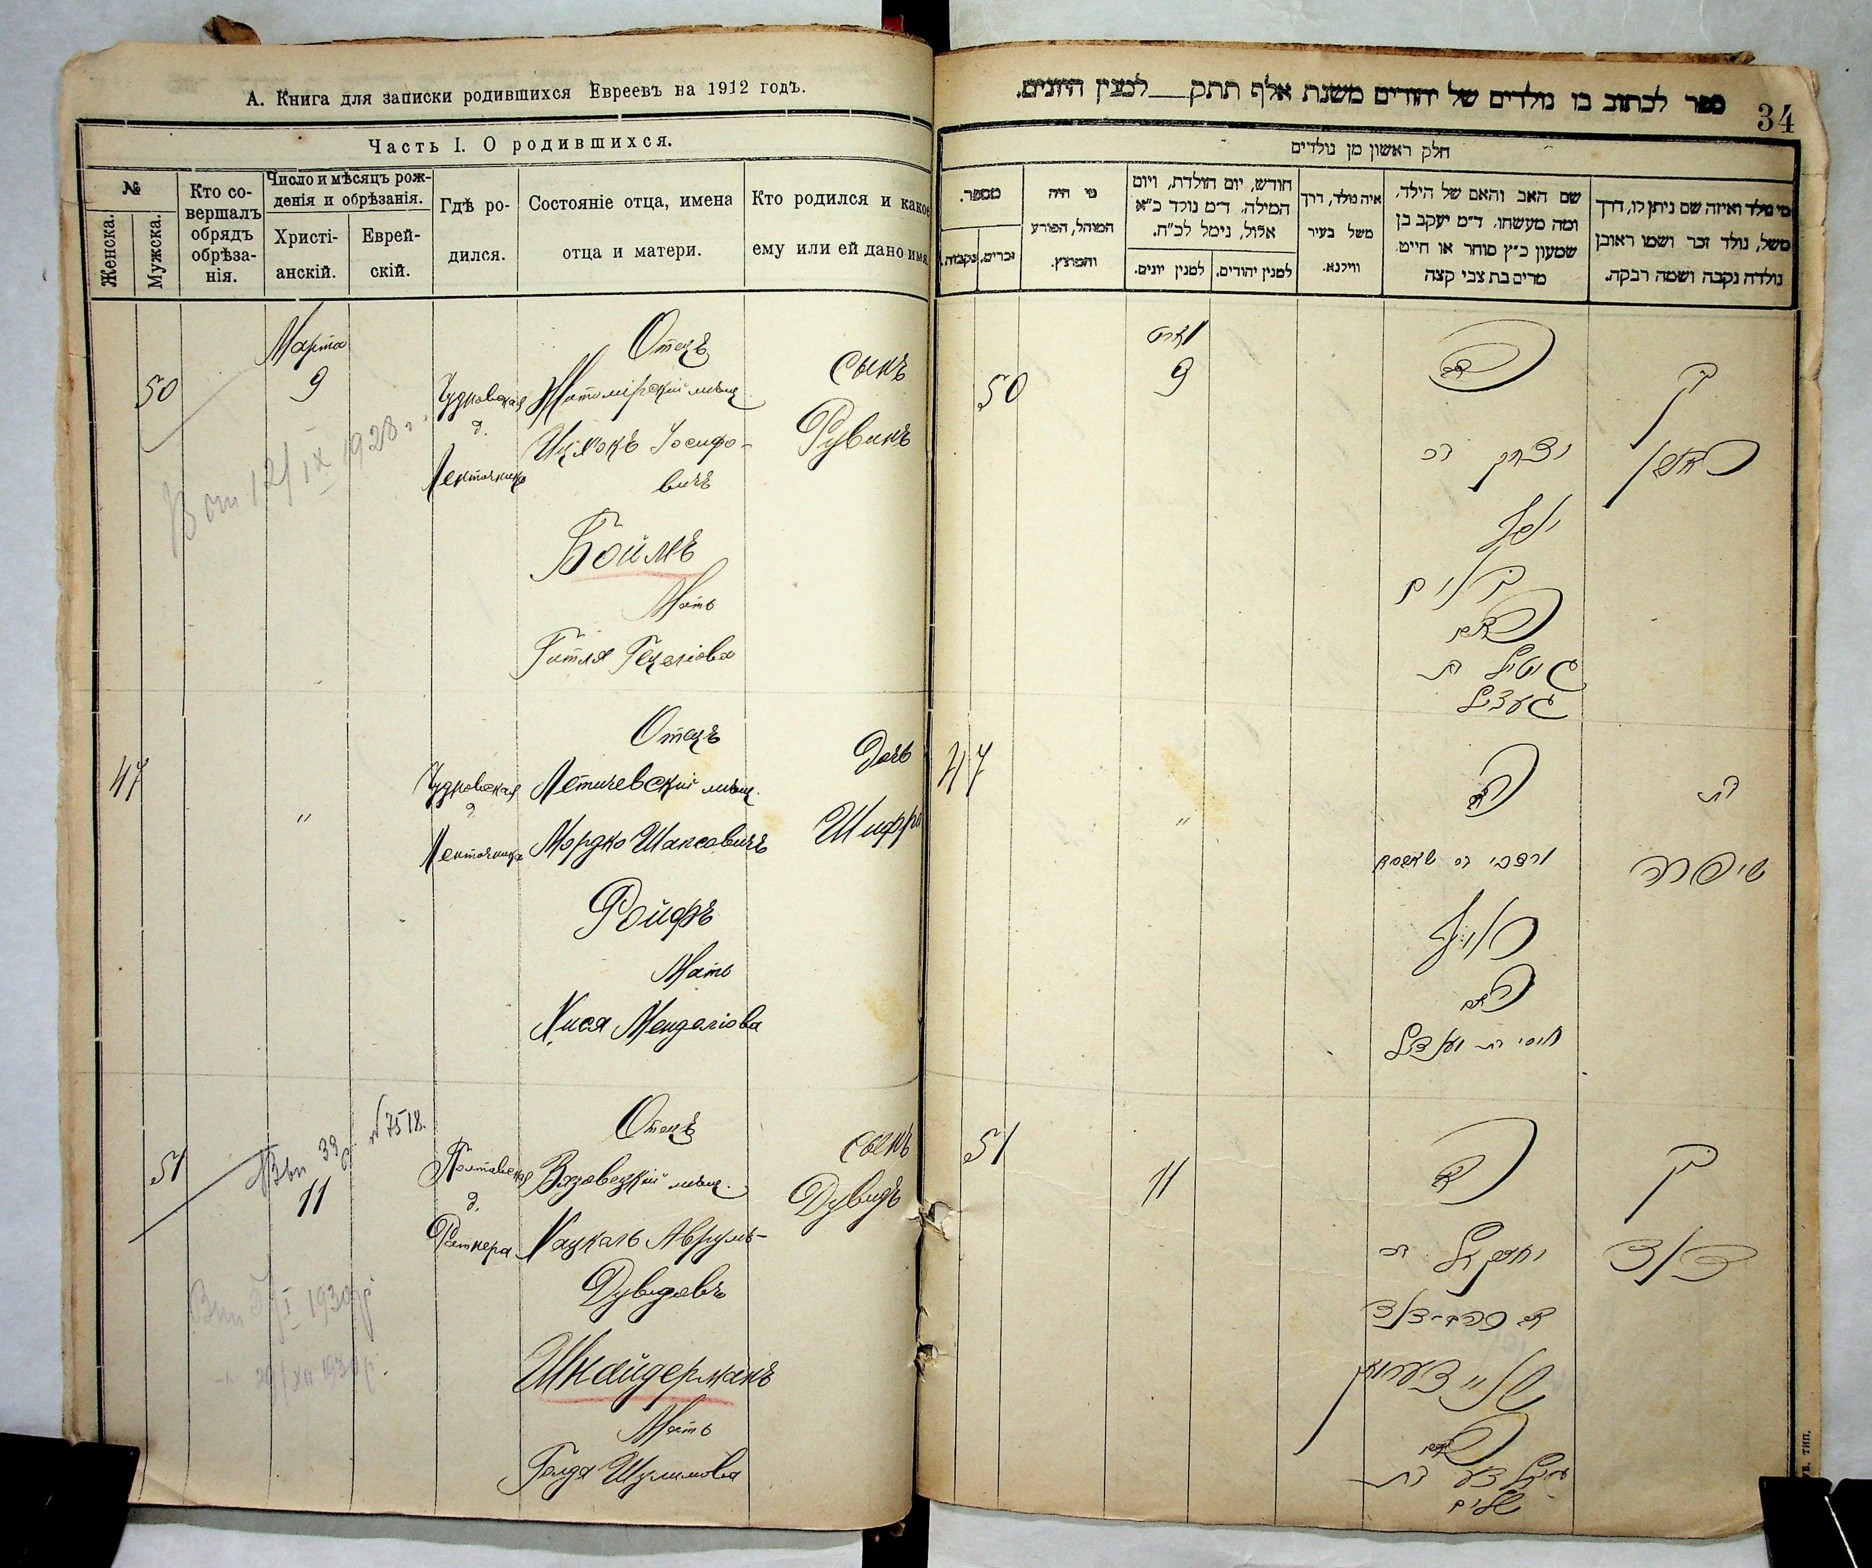 А. Книга для записки родившихся Евреевъ на 1912 годъ.
Часть I. О родившихся.
№
Женска.
Мужска.
Кто со-
вершалъ
обрядъ
обрѣза-
нія.
Число и мѣсяцъ рож-
денія и обрѣзанія.
Христі-
анскій.
Еврей-
скій.
Гдѣ ро-
дился.
Состояніе отца, имена
отца и матери.
Кто родился и какое
ему или ей дано имя
50
Марта
9
Чудновская
д.
Отецъ
Житомірскій мѣщ.
Ицхокъ Іосифо-
вичъ
Боймъ
Мать
Гитля Гецеліова
сынъ
Рувинъ
47
"
Чудновская
д
Отецъ
Летичевскій мѣщ.
Мордко Шапсовичъ
Ройфъ
Мать
Хися Менделіова
Дочь
Шифра
51
11
№ 7518.
Полтавская
д.
Ратнера
Отецъ
Вязовецкій мѣщ.
Хацкаль Аврумъ-
Дувидовъ
Шнайдерманъ
Мать
Голда Шулимова
сынъ
Дувидъ
ספר לכתוב בו נולדים של יהודים משנת אלף תתק__למנין היונים.
34
חלק ראשון מן נולדים
מספר.
זכרים.
נקבות.
מי היה
המוהל, הפורע
והמוצץ.
חודש, יום הולדת, ויום
המילה, ד״מ נולד כ״א
אלול, נימל לכ״ח.
למנין יונים.
למנין יהודים.
איה נולד, דרך
משל בעיר
ווילנא.
שם האב והאם של הילד,
ומה מעשהו, ד״מ יעקב בן
שמעון כ״ץ סוחר או חייט
מרים בת צבי קצה
מי נולד ואיזה שם ניתן לו, דרך
משל, נולד זכר ושמו ראובן
נולדה נקבה ושמה רבקה.
50
מארט
9
האב
יצחק בר
יוסף
בוים
האם
גיטל בת
געציל
בן
ראובן
47
"
האב
מרדכי בר שאפסא
רויף
האם
חיסי בת מענדיל
בת
שיפרה
51
11
האב
יחזקאל בר
אברהם-דוד
שניידערמאן
האם
גאלדע בת
שלום
בן
דוד